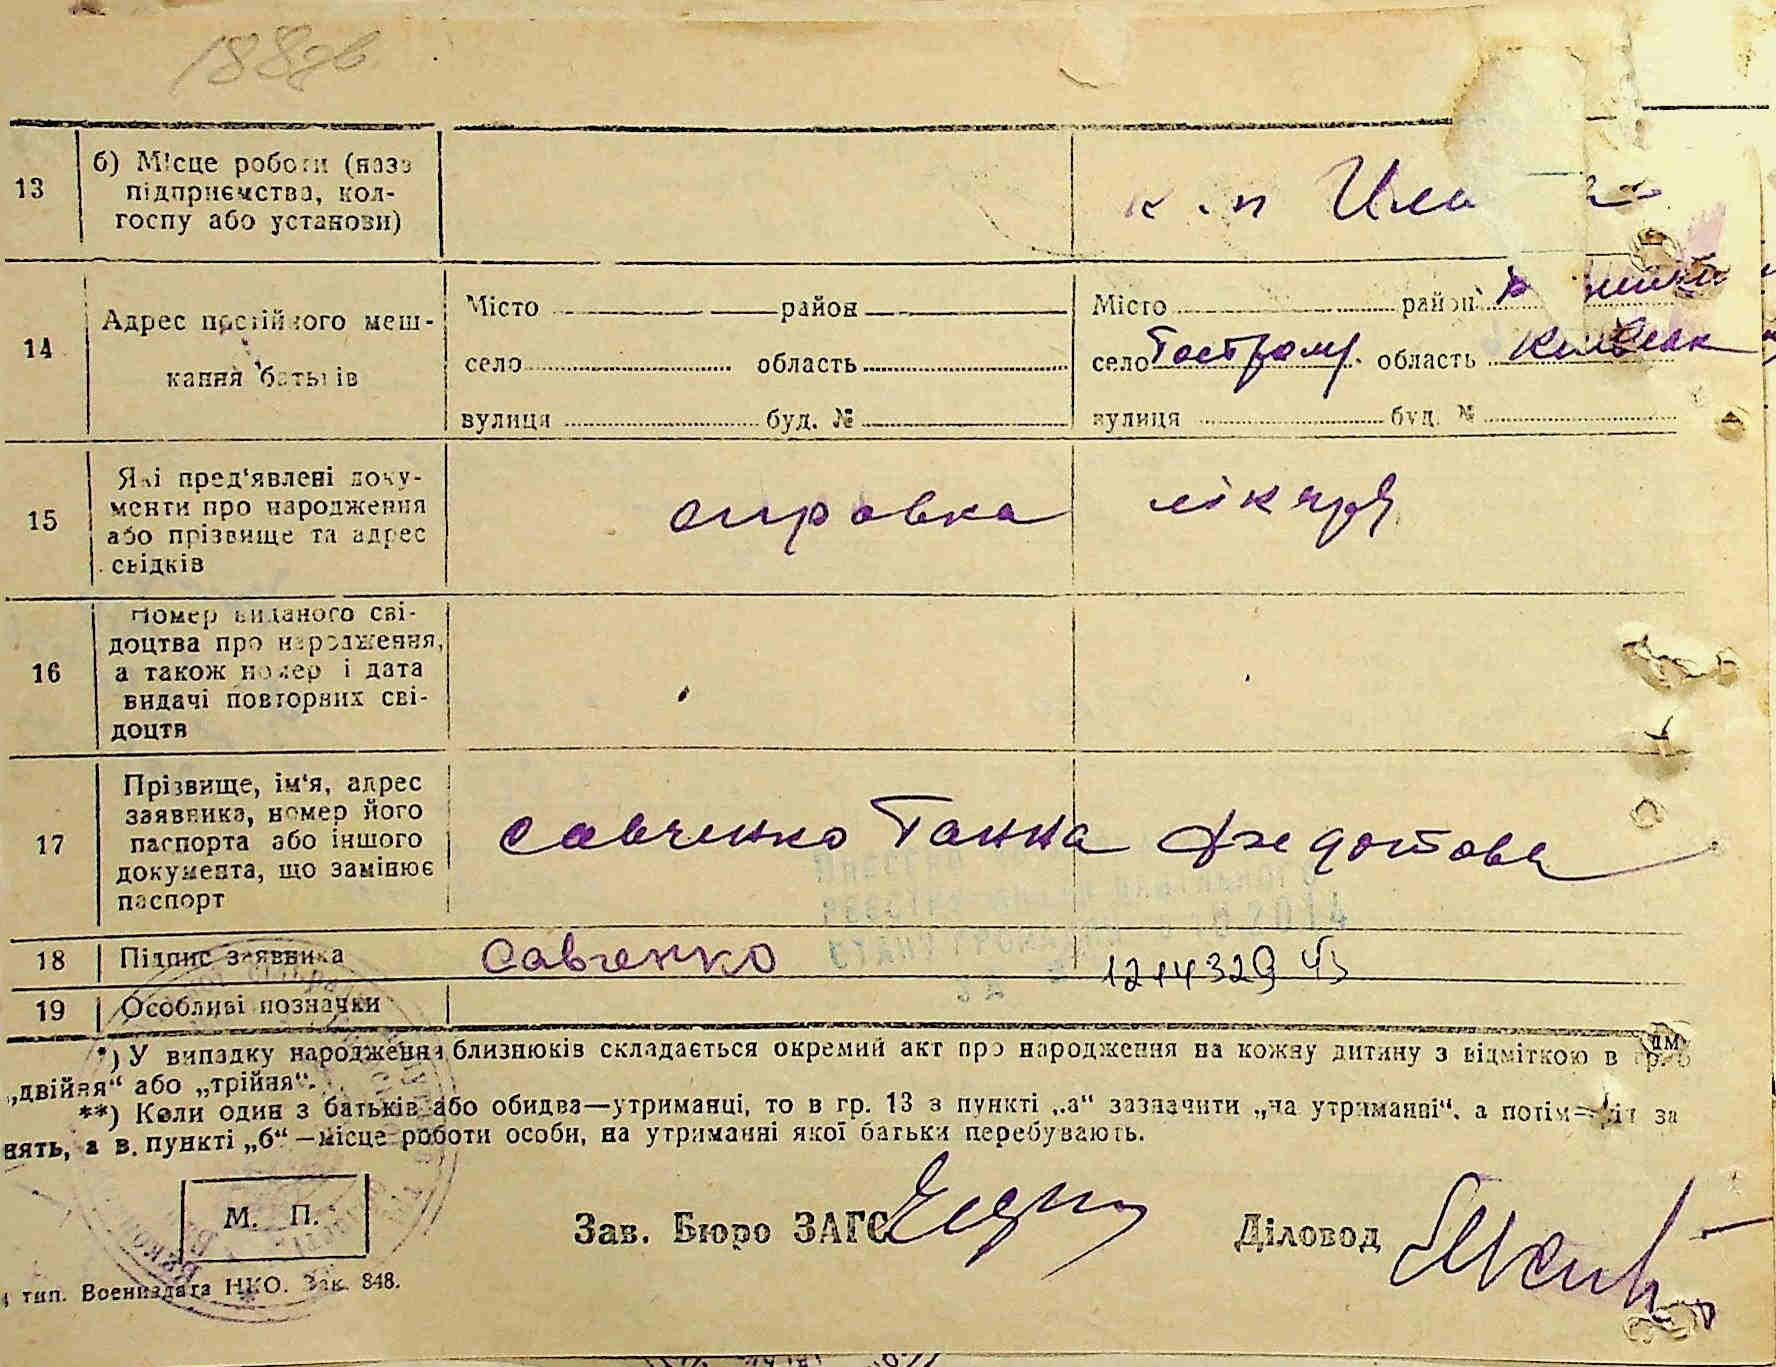 188зв
13
б) Місце роботи (назв
підприємства, кол-
госпу або установи)
к. п
14
Адрес постійного меш-
кання батьків
Місто район
село область
вулиця буд. №
Місто район
село Гостром. область Київськ
вулиця буд. №
15
Які пред'явлені доку-
менти про народження
або прізвище та адрес
свідків
справка лікаря
16
Номер виданого сві-
доцтва про народження,
а також номер і дата
видачі повторних сві-
доцтв
17
Прізвище, ім'я, адрес
заявника, номер його
паспорта або іншого
документа, що замінює
паспорт
Савченко Ганна Федотова
18
Підпис заявника
Савченко
1214329
19
Особливі позначки
*) У випадку народження близнюків складається окремий акт про народження на кожну дитину з відміткою в гр.
„двійня“ або „трійня“.
**) Коли один з батьків або обидва—утриманці, то в гр. 13 з пункті „а“ зазначити „на утриманні“, а потім за
нять, а в. пункті „б“—місце роботи особи, на утриманні якої батьки перебувають.
М. П.
Зав. Бюро ЗАГС
Діловод
тип. Воениздата НКО. Зак. 848.